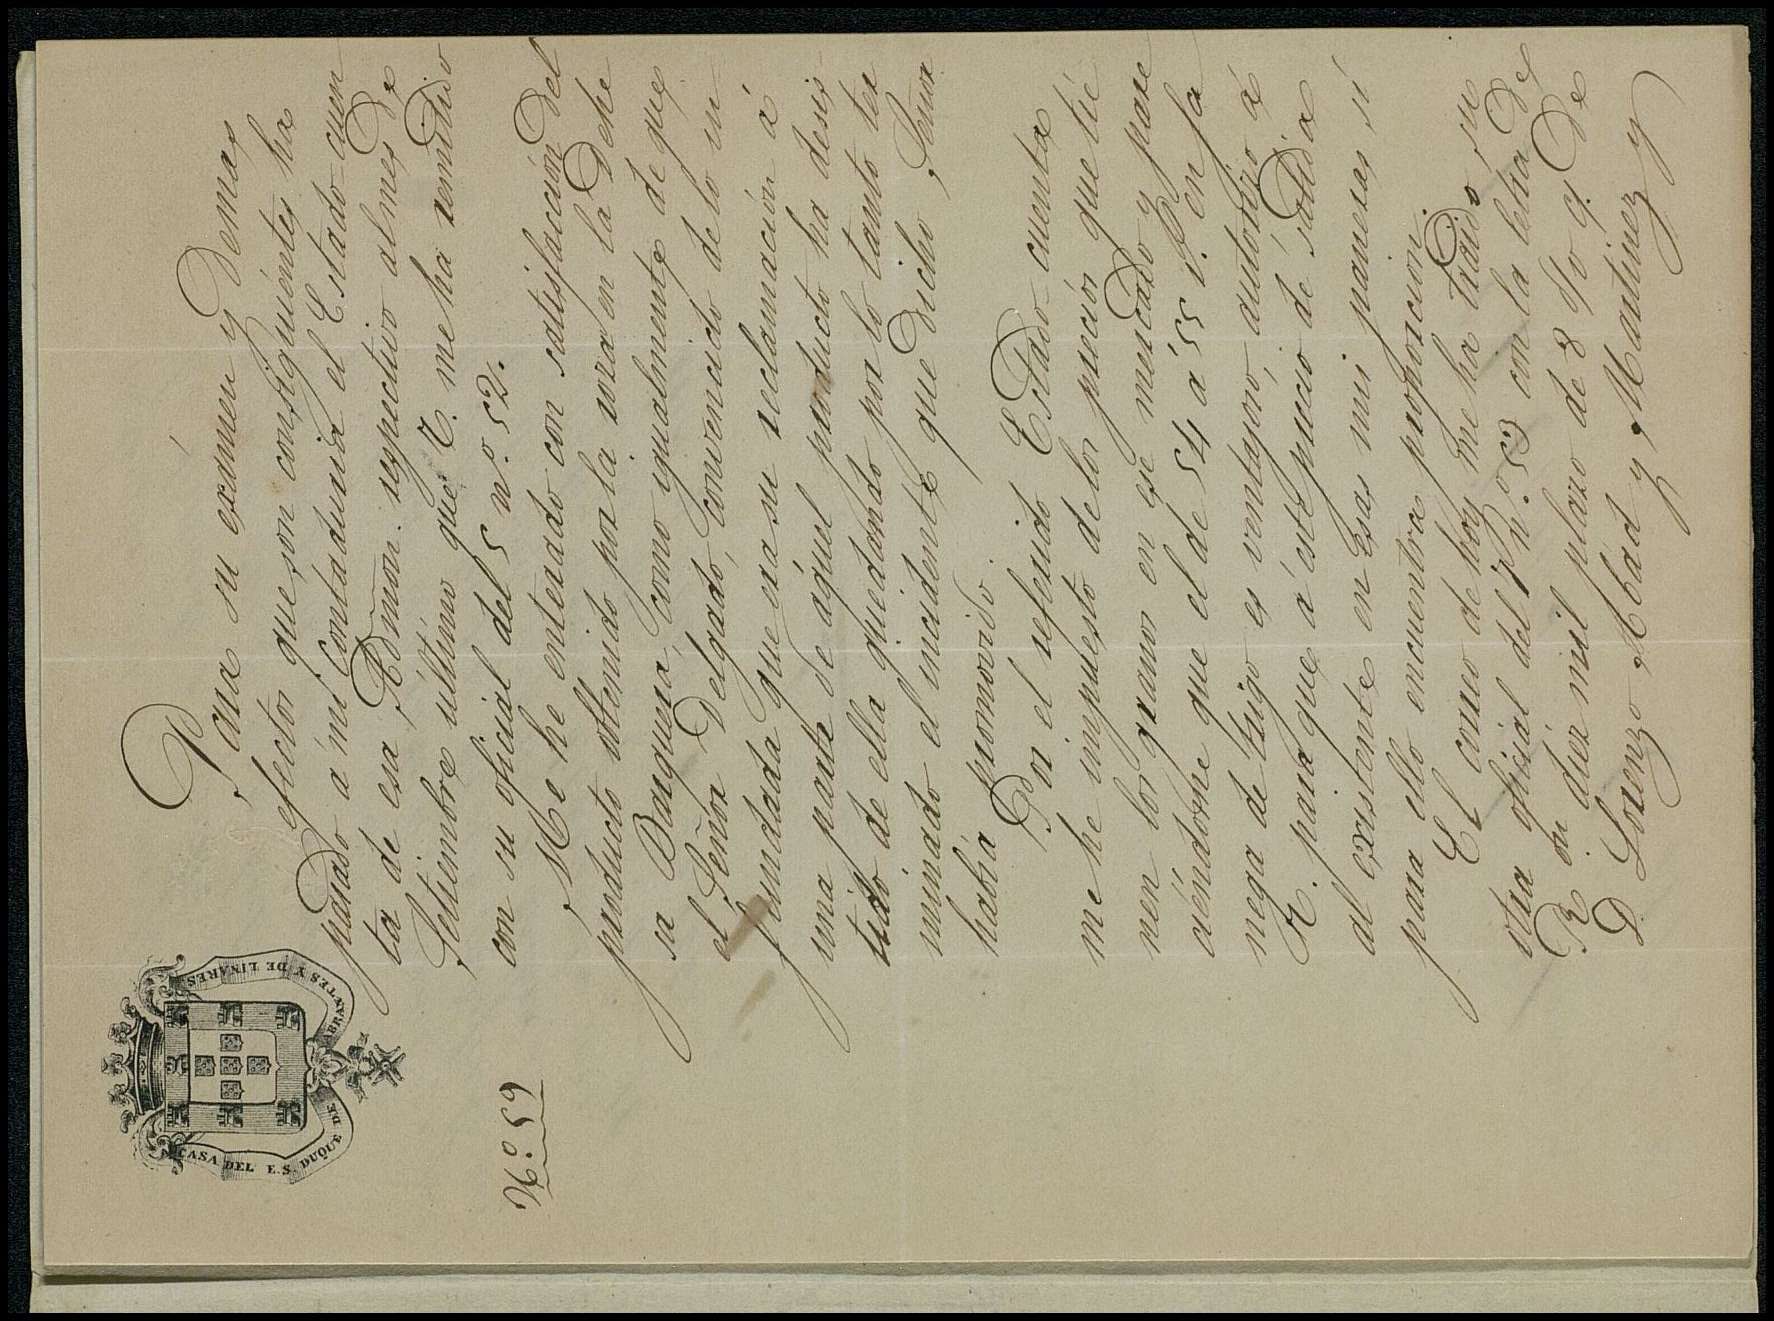 CASA DEL E.S. DUQUE DE ABRANTES Y DE LINARES
N.º 59
Para su exámen y demas
efectos que son consiguientes ha
pasado á mi Contaduria el Estado-cuen
ta de esa Admon. respectivo al mes de
Setiembre último que V. me ha remitido
con su oficial del 5 n.º 52.
Me he enterado con satisfaccion del
producto obtenido por la roza en la Dehe
sa Baquera, como igualmente de que
el Señor Delgado, convencido de lo in
fundada que era su reclamacion á
una parte de aquel producto ha desis
tido de ella quedando por lo tanto ter
minado el incidente que dicho Señor
habia promovido.
Por el referido Estado-cuenta
me he impuesto de los precios que tie
nen los granos en ese mercado y pare
ciéndome que el de 54 á 55 r.s en fa
nega de trigo es ventajoso, autorizo á
V. para que á este precio dé salida
al existente en esas mis paneras si
para ello encuentra proporcion.
El correo de hoy me ha traido su
otra oficial del 7 n.º 53 con la letra de
R.s on diez mil plazo de 8 d/v c/. de
D. Lorenzo Abad y Martinez y